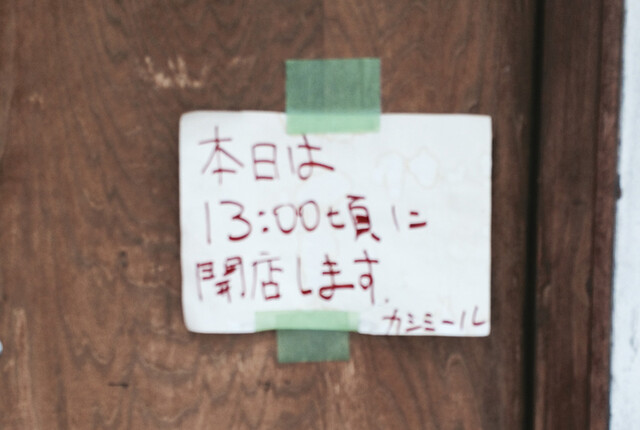 本日は
13:00頃に
開店します.
カシミール